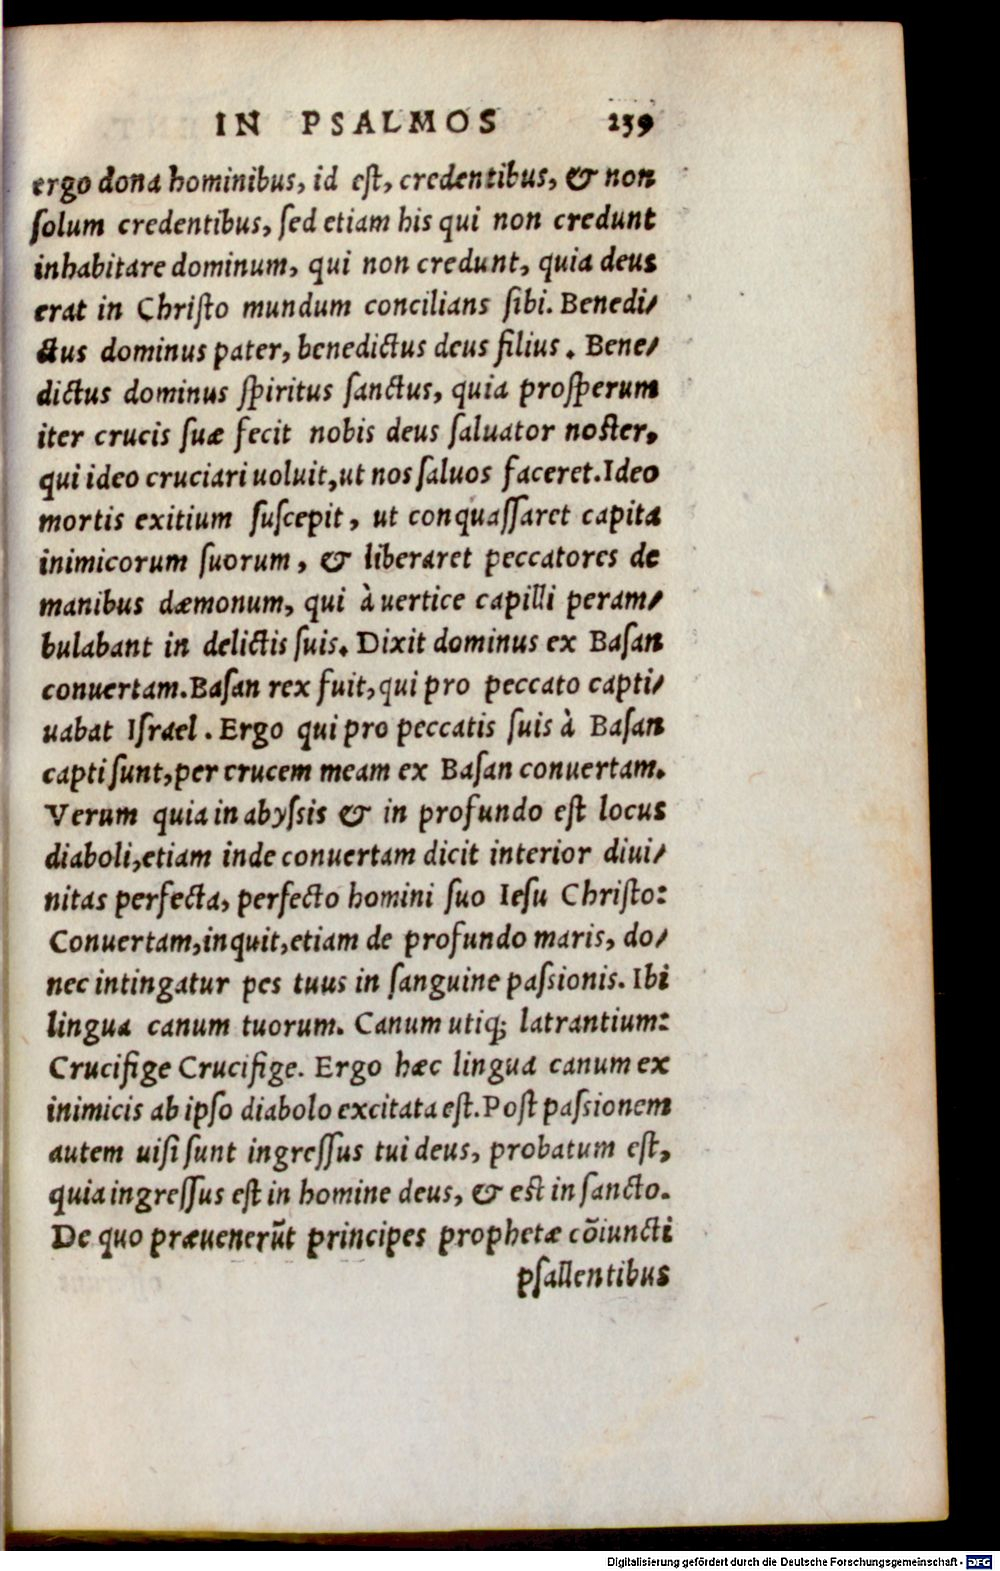 IN PSALMOS 239
ergo dona hominibus, id eſt, credentibus, & non
ſolum credentibus, ſed etiam his qui non credunt
inhabitare dominum, qui non credunt, quia deus
erat in Chriſto mundum concilians ſibi. Benedi/
ctus dominus pater, benedictus deus filius. Bene/
dictus dominus ſpiritus ſanctus, quia proſperum
iter crucis ſuæ fecit nobis deus ſaluator noſter,
qui ideo cruciari uoluit, ut nos ſaluos faceret. Ideo
mortis exitium ſuſcepit, ut conquaſſaret capita
inimicorum ſuorum, & liberaret peccatores de
manibus dæmonum, qui à uertice capilli peram/
bulabant in delictis ſuis. Dixit dominus ex Baſan
conuertam. Baſan rex fuit, qui pro peccato capti/
uabat Iſrael. Ergo qui pro peccatis ſuis à Baſan
capti ſunt, per crucem meam ex Baſan conuertam.
Verum quia in abyſsis & in profundo eſt locus
diaboli, etiam inde conuertam dicit interior diui/
nitas perfecta, perfecto homini ſuo Ieſu Chriſto:
Conuertam, inquit, etiam de profundo maris, do/
nec intingatur pes tuus in ſanguine paſsionis. Ibi
lingua canum tuorum. Canum utiq; latrantium:
Crucifige Crucifige. Ergo hæc lingua canum ex
inimicis ab ipſo diabolo excitata eſt. Poſt paſsionem
autem uiſi ſunt ingreſſus tui deus, probatum eſt,
quia ingreſſus eſt in homine deus, & eſt in ſancto.
De quo præuenerũt principes prophetæ cõiuncti
pſallentibus
Digitalisierung gefördert durch die Deutsche Forschungsgemeinschaft - DFG